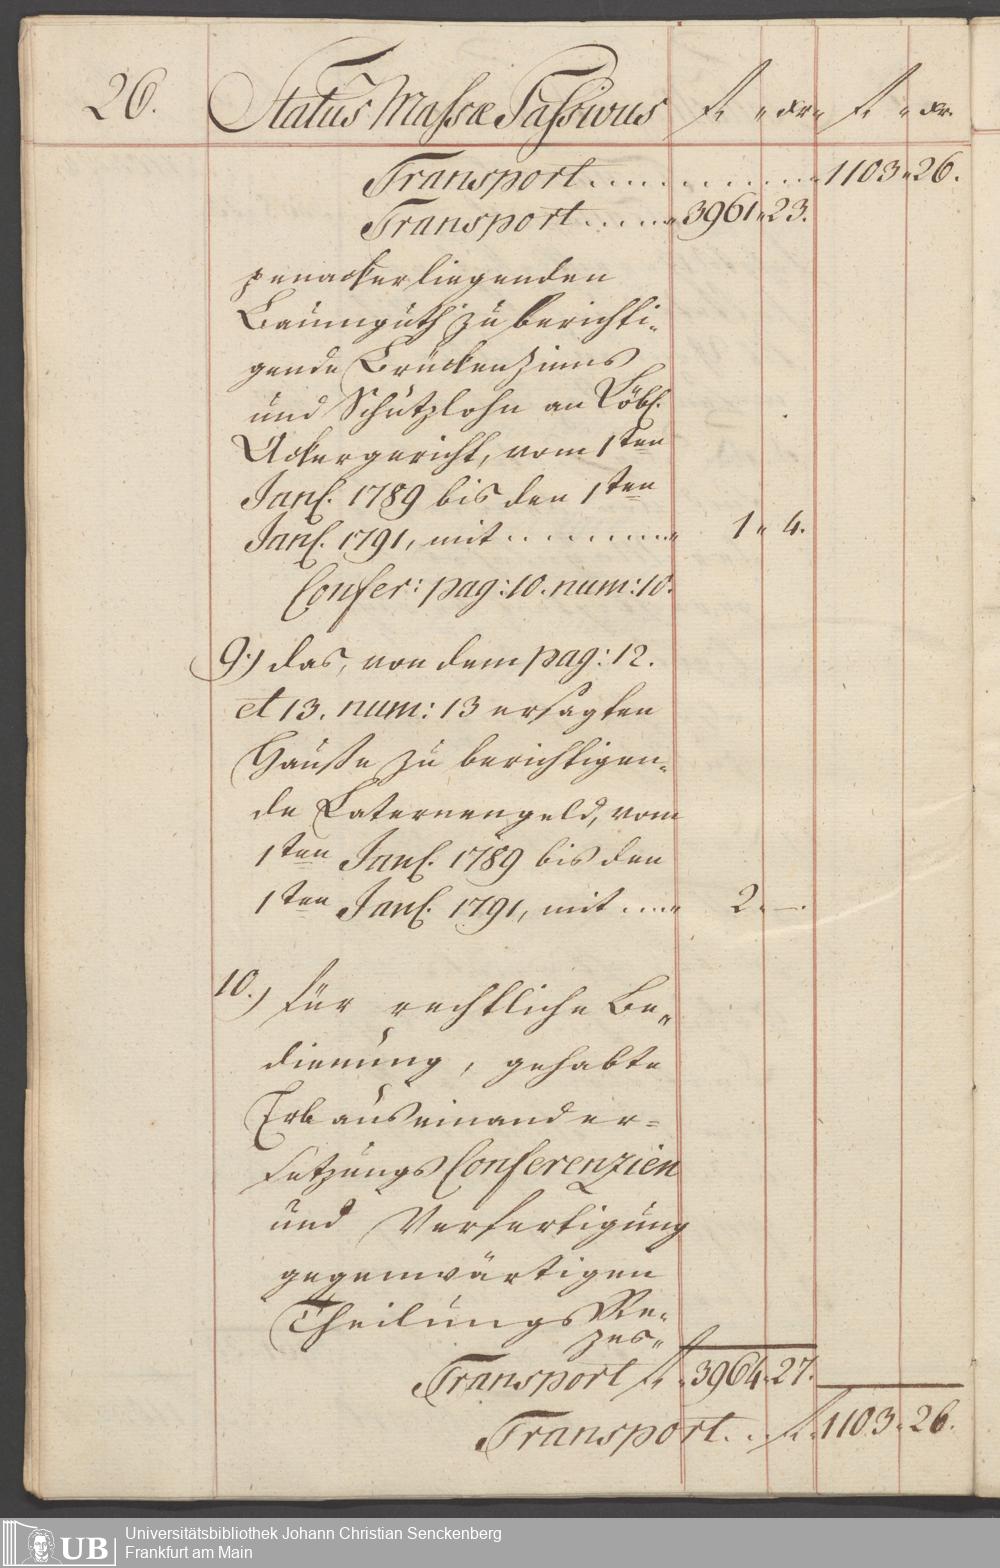 26. Status Massæ Passivus fl. " xr. " fl. " xr.
Transport .............. " 1103 " 26.
Transport ...... " 3961 " 23.
penackerliegenden
Baumguth zu berichti-
gende Brückenzinns
und Schützlohn an Löbl.
Ackergericht, vom 1ten
Janl. 1789 bis den 1ten
Janl. 1791, mit .......... " 1 " 4.
Confer: pag: 10. num: 10.
9.) das, von dem pag: 12.
et 13. num: 13 ersagten
Hauße zu berichtigen-
de Laternengeld, vom
1ten Janl. 1789 bis den
1ten Janl. 1791, mit .... " 2 " —.
10.) für rechtliche Be-
dienung, gehabte
Erbauseinander-
setzungs Conferenzien
und Verfertigung
gegenwärtigen
Theilungs Re-
zes-
Transport fl. " 3964 " 27.
Transport . . fl. " 1103 " 26.
UB Universitätsbibliothek Johann Christian Senckenberg
Frankfurt am Main